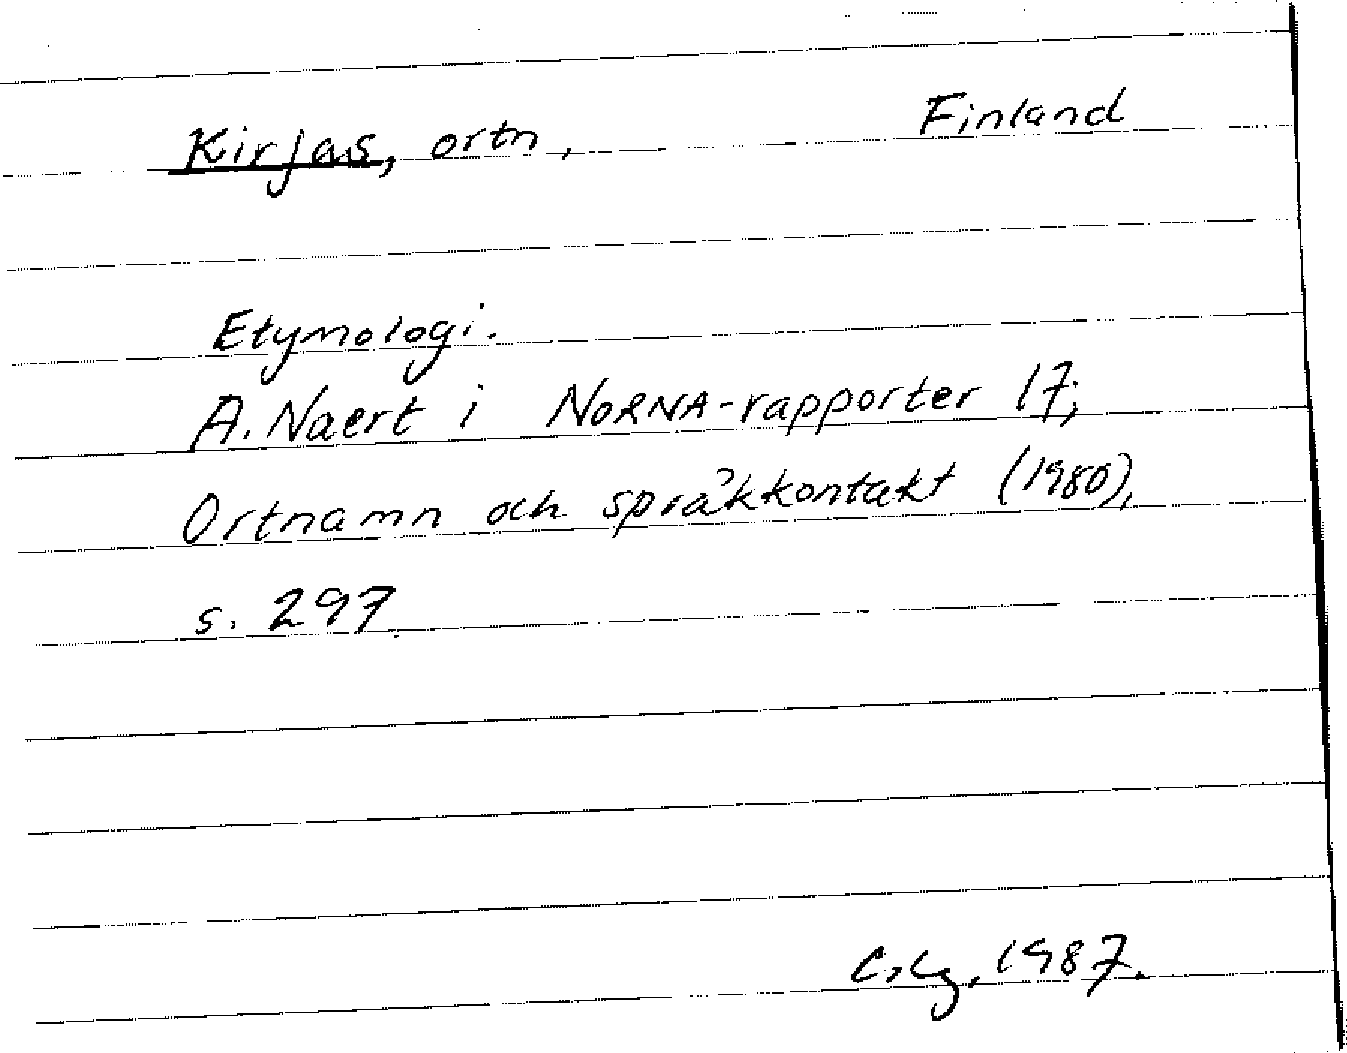 Kirjas, ortn, Finland
Etymologi.
A. Naert i NORNA-rapporter 17;
Ortnamn och språkkontakt (1980),
s. 297.
1987.